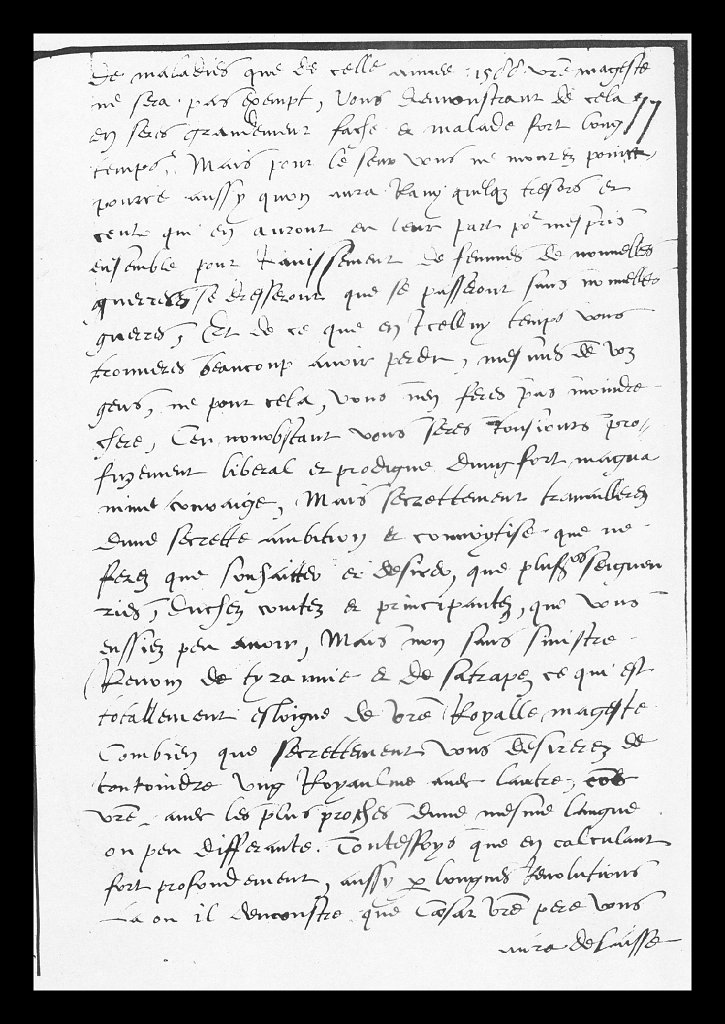 De maladies que de celle annee 1588 vre mageste
ne sera pas exempt, Vous demonstrant de cela
en seres grandement fache & malade fort long
temps. Mais pour le seur vous ne mourez point
pource aussy quon aura Ravy quelqz tresors et
ceulx qui en auront eu leur part po mespris
ensemble pour Ravissement de femmes de nouuelles
guerres se dresseront que se passeront sans nouuelles
guerres, Et de ce que en Icelluy temps vous
trouueres beaucoup auoir perdu, mesmes de voz
gens, ne pour cela, vous nen feres pas moindre
chere, Ceu nonobstant vous seres tousiours pro-
fuzement liberal et prodigue dung fort magna
nime couraige, Mais secrettement trauailleres
dune secrette ambition & conuoytise que ne
feres que souhaitter et desirer, que plusrs seigneu
ries, duchez contez & principautez, que vous
eussiez peu auoir, Mais non sans sinistre
Renom de tyrannie & de satrape ce qui est
totallement esloigne de vre Royalle mageste
Combien que secrettement vous desirerez de
conioindre vng Royaulme auec lautre,
vre auec les plus proches dune mesme langue
ou peu differante. Touteffoys que en calculant
fort profondement, aussy p longues Reuolutions
La ou il demonstre que Cæsar vre pere vous
aura delaisse